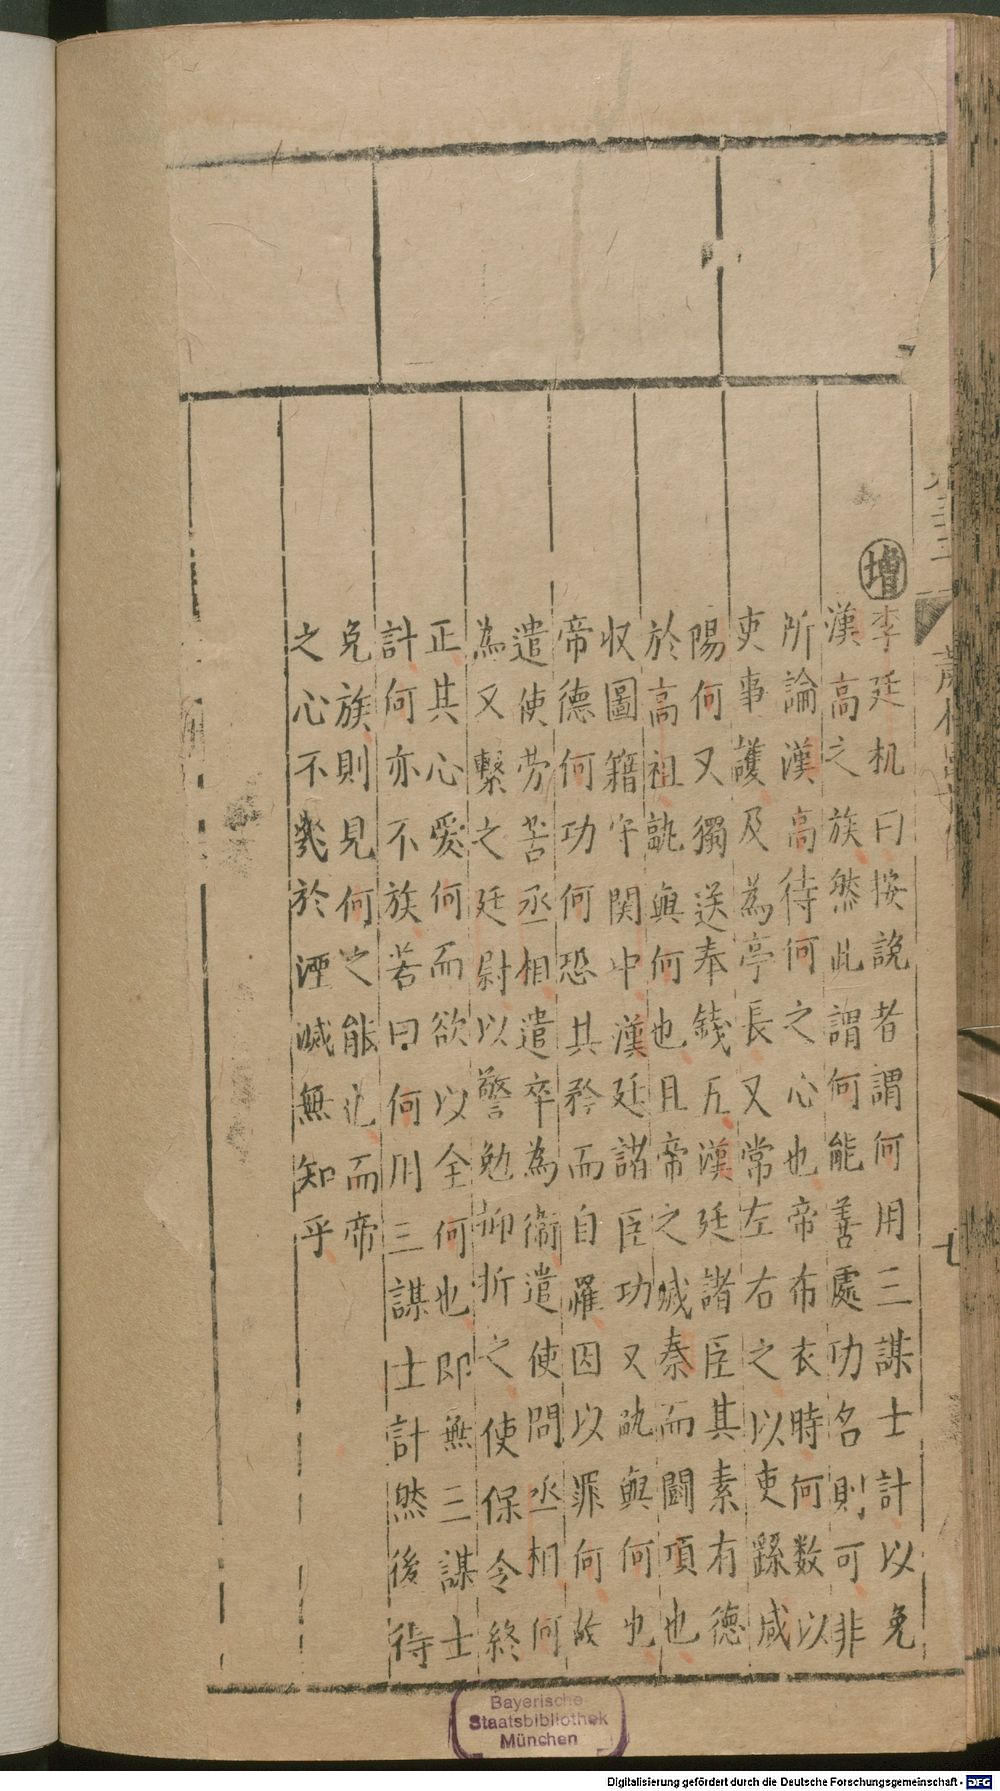 增
李廷机曰按説者謂何用三謀士計以免
漢高之族然此謂何能善處功名則可非
所論漢高待何之心也帝布衣時何数以
吏事護及為亭長又常左右之以吏繇咸
陽何又獨送奉錢五漢廷諸臣其素有德
於高祖孰與何也且帝之滅秦而鬭項也
収圖籍守関中漢廷諸臣功又孰與何也
帝德何功何恐其矜而自罹囙以罪何故
遣使劳苦丞相遣卒為衞遣使問丞相何
為又繫之廷尉以警勉抑折之使保令終
正其心愛何而欲以全何也即無三謀士
計何亦不族若曰何用三謀士計然後得
免族則見何之能也而帝
之心不幾於湮滅無知乎
七
Bayerische
Staatsbibliothek
München
Digitalisierung gefördert durch die Deutsche Forschungsgemeinschaft - DFG